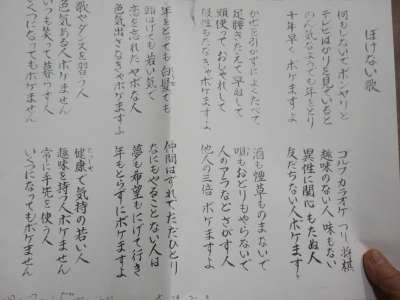 ぼけない歌
何もしないで ボンヤリと
テレビばかりを 見ていると
のん気なようでも 年をとり
十年早く ボケますよ
かぜを引かずに よくたべて
足腰きたえて 早起して
頭使って おしゃれして
もたなきゃ ボケますよ
年をとっても 白髪ても
頭はげても 若い気で
恋を忘れた ヤボな人
色気出さなきゃ ボケますよ
歌やダンスを 習う人
色気ある人 ボケません
いつも笑って 暮す人
くつになっても ボケません
ゴルフ カラオケ つり 将棋
趣味のない人 味もない
異性に関心 もたぬ人
友だちない人 ボケますよ
酒も煙草も のまないで
唄もおどりも やらないで
人のアラなど さがす人
他人の三倍 ボケますよ
仲間はずれで ただひとり
なにもやること ない人は
夢も希望も にげて行き
年もとらずに ボケますよ
健康で気持の若い人
趣味を持つ人 ボケません
常に手先を 使う人
いくつになっても ボケません